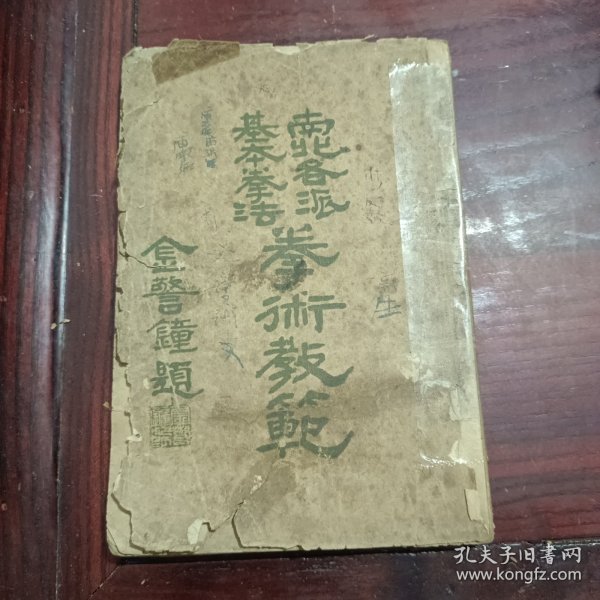 南北各派
基本拳法
拳術教範
金警鐘題
生
孔夫子旧书网
www.kongfz.com